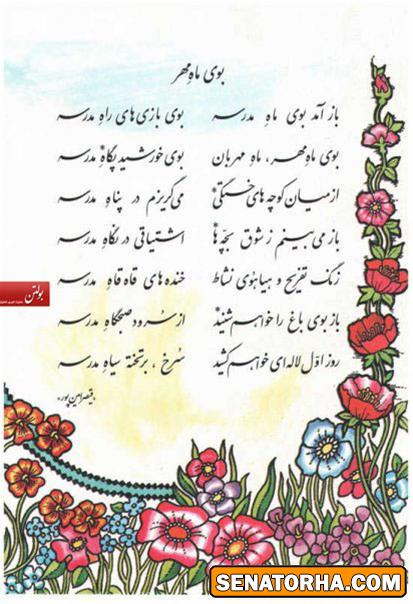 بوی ماهِ مهر
باز آمد بوی ماهِ مدرسه بوی بازی های راهِ مدرسه
بوی ماهِ مهر، ماهِ مهربان بوی خورشیدِ پگاهِ* مدرسه
از میان کوچه های خستگی* می گریزم در پناهِ مدرسه
باز می بینم ز شوق بچّه ها اشتیاقی در نگاهِ مدرسه
زنگ تفریح و هیاهوی نشاط خنده های قاه قاهِ مدرسه
باز بوی باغ را خواهم شنید* از سرودِ صبحگاهِ مدرسه
روز اوّل لاله ای خواهم کشید سُرخ، بر تختۀ سیاهِ مدرسه
«قیصر امین پور»
بولتن
SENATORHA.COM